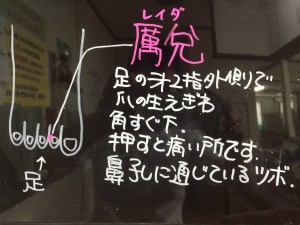 レイダ
厲兌
足の第2指外側で
爪の生えぎわ
角すぐ下.
押すと痛い所です.
鼻孔に通じているツボ.
足